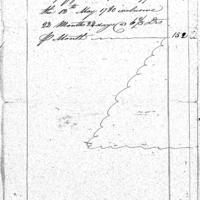 the 13th May 1780 inclusive
23 Months 24 days @ 6⅔ Drs
℘ Month 152